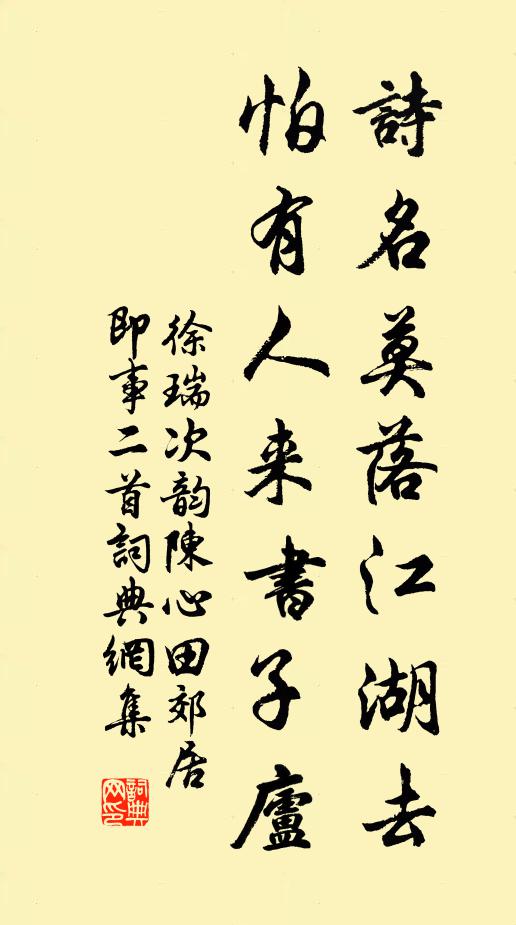 詩名莫落江湖去
怕有人来書子廬
徐瑞次韵陳心田郊居
即事二首詞典網集
詞典网印